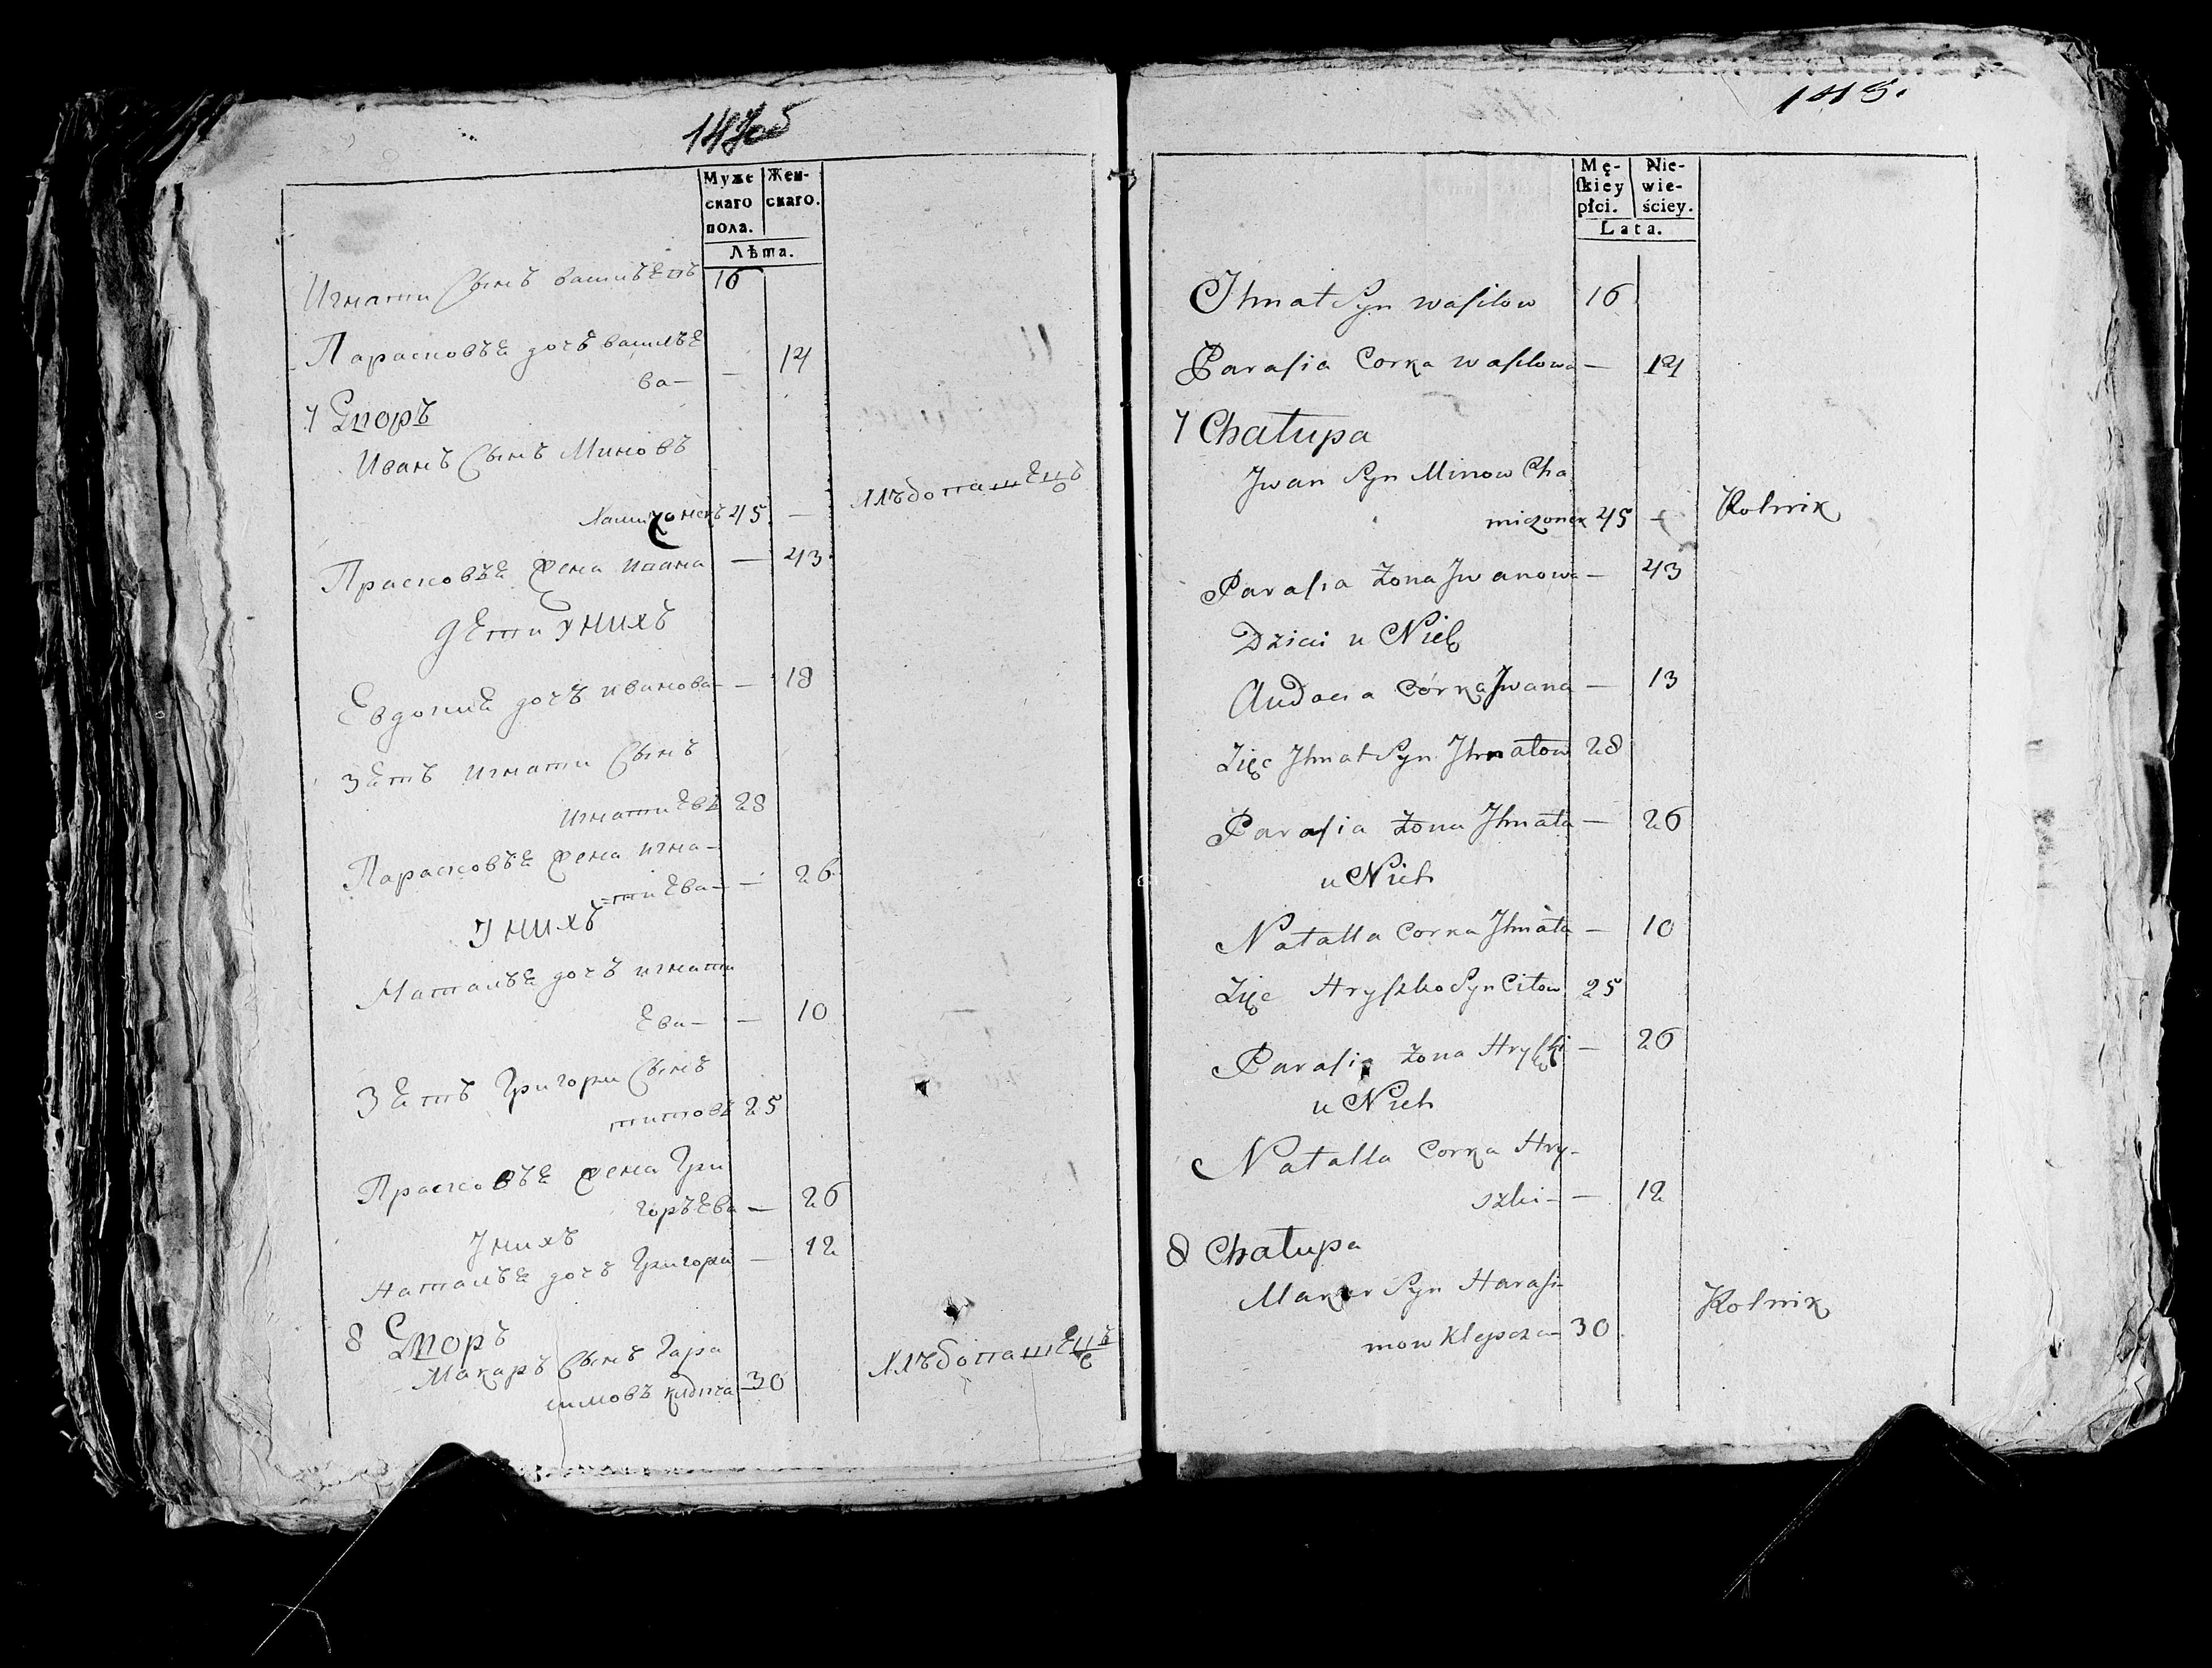 147об
Муже
скаго
пола.
Жен-
скаго.
Лѣта.
Игнати Сынъ василъЕвъ 16
ПарасковъЕ дочъ василъЕ
ва — — 14
7 Дворъ
Иванъ Сынъ Миновъ
45 —
ПрасковъЕ жена ивана — 43
дЕти У нихъ
Евдокия дочъ иванова — — 18
ЗЕтъ игнати Сынъ
игнатиЕвъ 28
ПарасковъЕ жена игна-
тиЕва — — 26
У нихъ
НаталъЕ дочъ игнати
Ева — — 10
ЗЕтъ Григори Сынъ
титовъ 25
ПрасковъЕ жена Гри
горъЕва — 26
У нихъ
НаталъЕ дочъ Григори — 12
8 Дворъ
Макаръ Сынъ Гара
симовъ 30
148.
Mę-
ſkiey
płci.
Nie-
wie-
ściey.
Lata.
Ihnat Syn Waſilow 16
Paraſia Corka Waſilowa — 14
7 Chałupa
Jwan Syn Minow Cha
miczonek 45 — Rolnik
Paraſia Żona Jwanowa — 43
Dzieci u Nich
Audocia Córka Jwana — 13
Zięć Ihnat Syn Ihnatow 28
Paraſia Żona Ihnata — 26
u Nich
Natalla Corka Ihnata — 10
Zięć Hryſzko Syn Citow 25
Paraſia Żona Hryſzki — 26
u Nich
Natalla Corka Hry-
szki — — 12
8 Chałupa
Makar Syn Haraſi-
mow Klepcza — 30 Rolnik